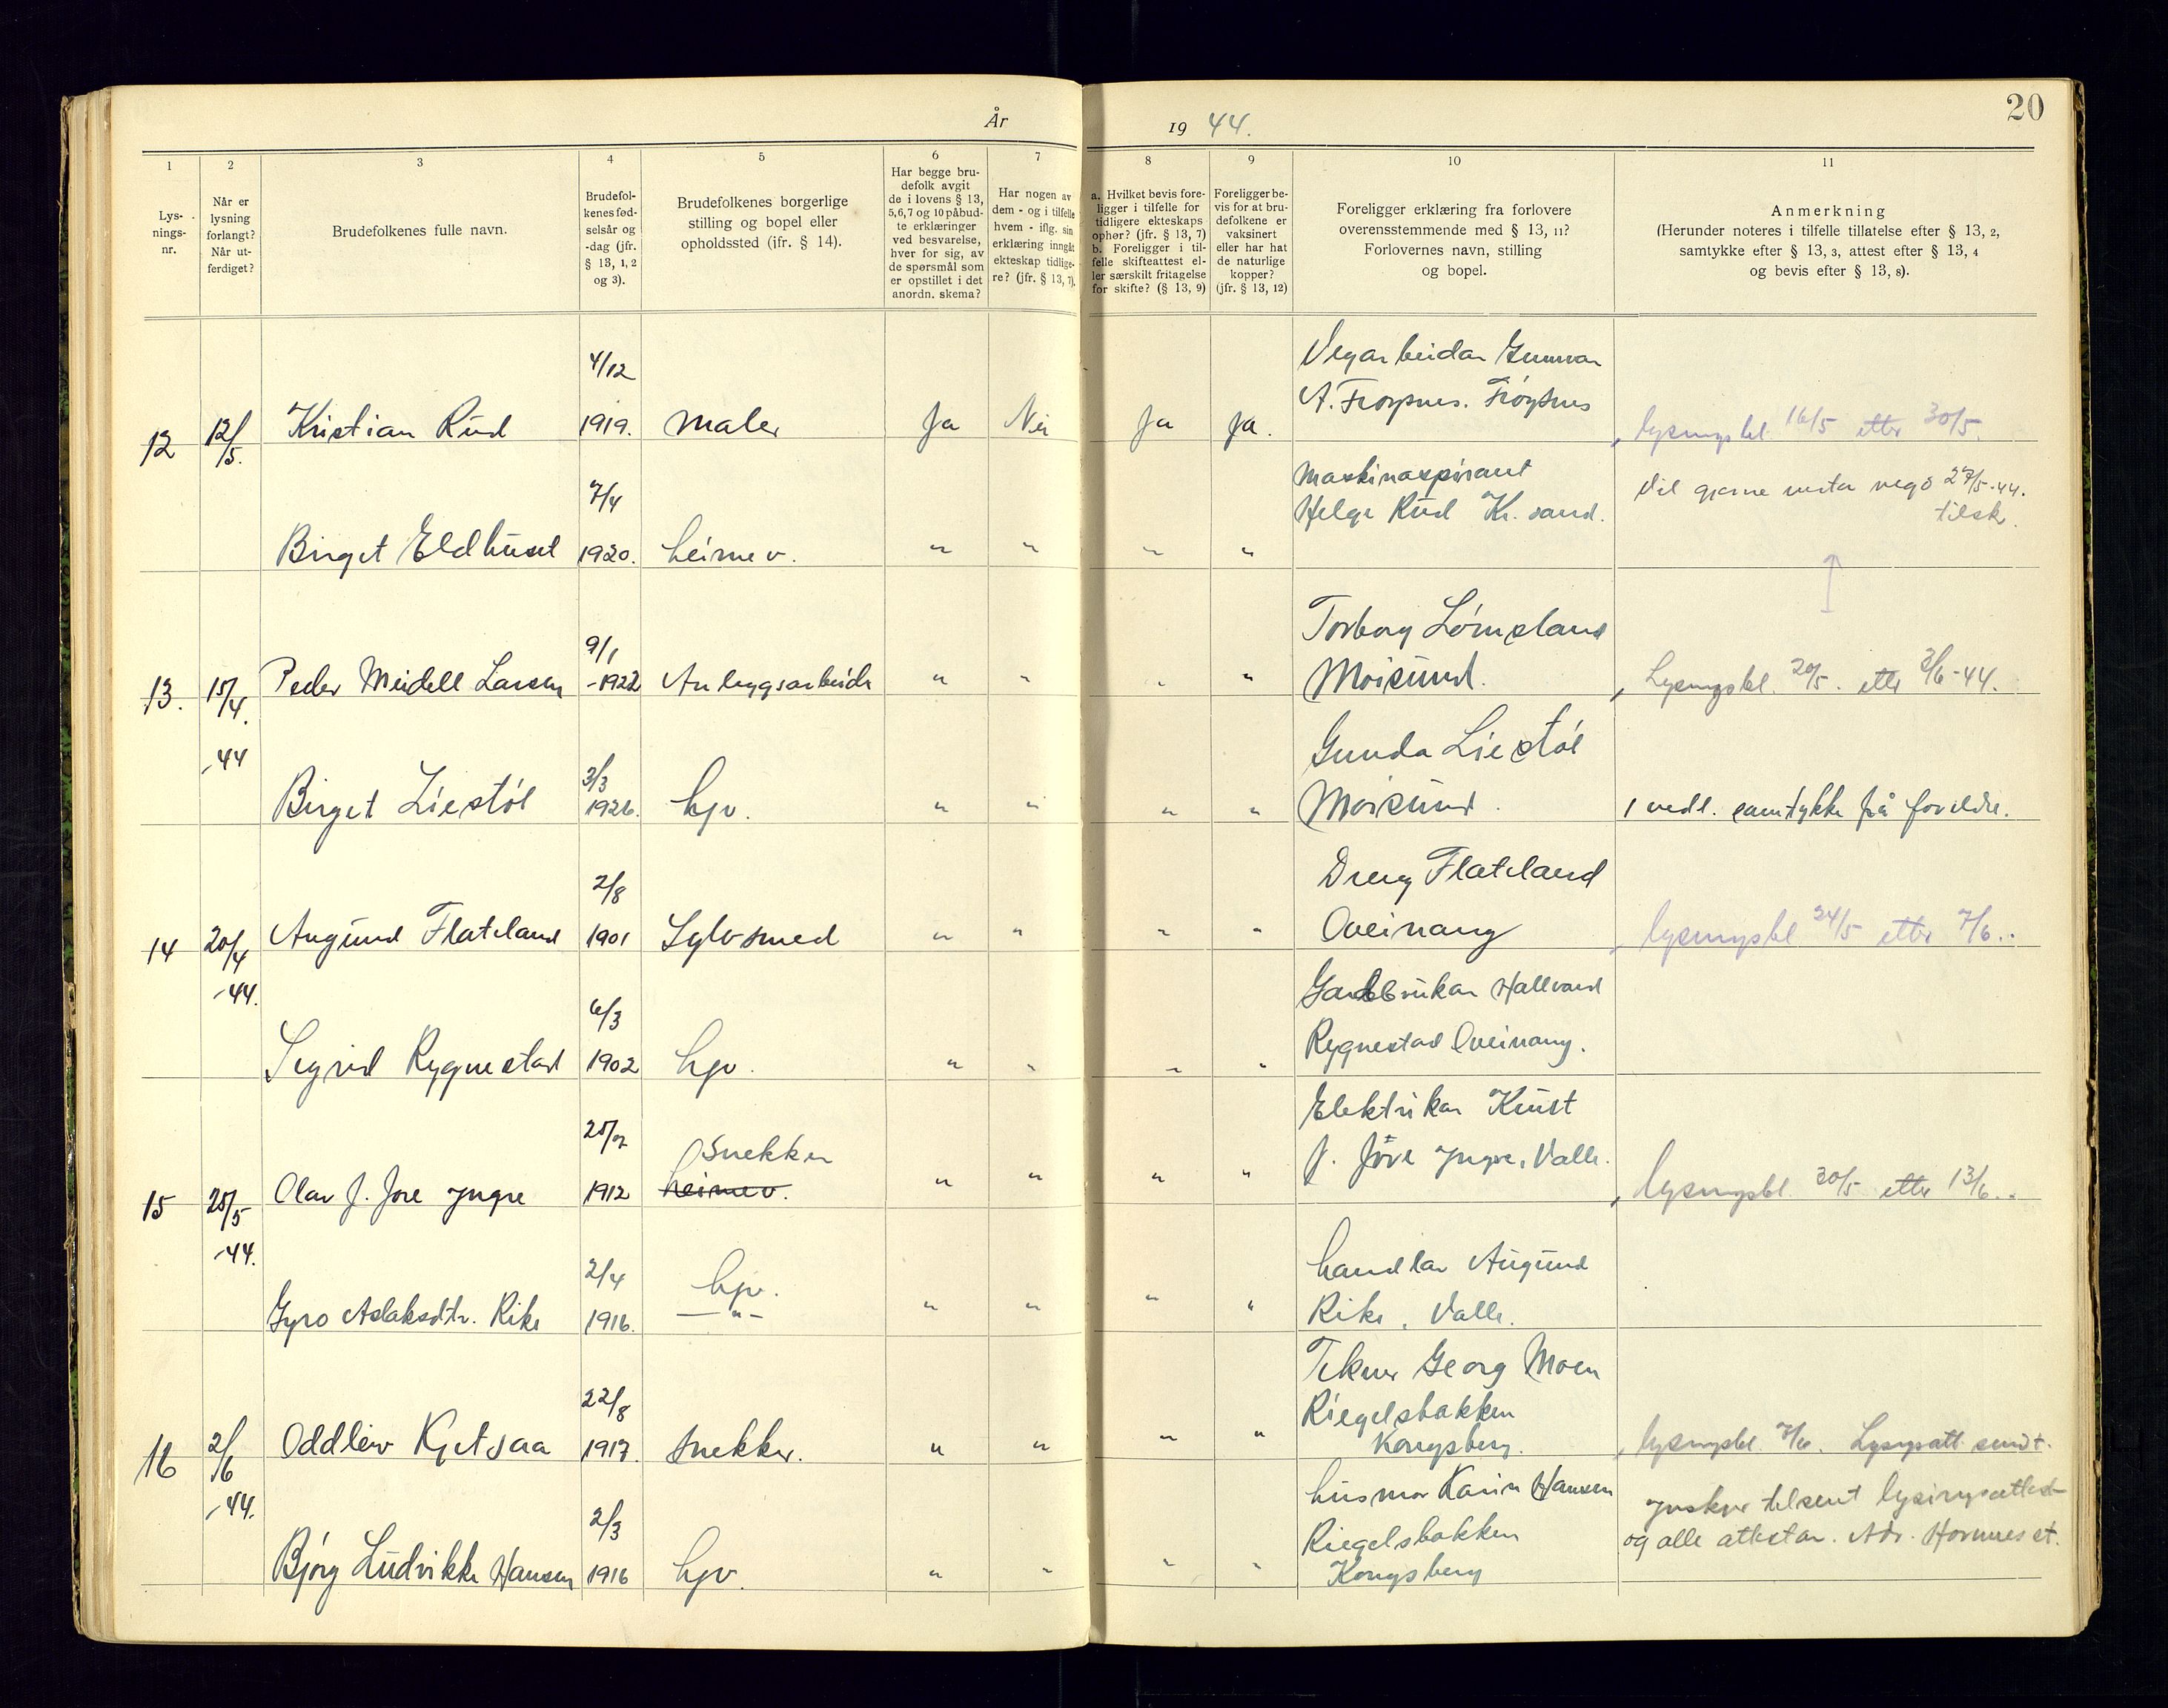 År 1944.
20
1 2 3 4 5 6 7 8 9 10 11
Lys-
nings-
nr.
Når er
lysning
forlangt?
Når ut-
ferdiget?
Brudefolkenes fulle navn.
Brudefol-
kenes fød-
selsår og
-dag (jfr.
§ 13, 1, 2
og 3).
Brudefolkenes borgerlige
stilling og bopel eller
opholdssted (jfr. § 14).
Har begge bru-
defolk avgit
de i lovens § 13,
5,6,7 og 10 påbud-
te erklæringer
ved besvarelse,
hver for sig, av
de spørsmål som
er opstillet i det
anordn. skema?
Har nogen av
dem - og i tilfelle
hvem - iflg. sin
erklæring inngått
ekteskap tidlige-
re? (jfr. § 13, 7).
a. Hvilket bevis fore-
ligger i tilfelle for
tidligere ekteskaps
ophør? (jfr. § 13, 7)
b. Foreligger i til-
felle skifteattest el-
ler særskilt fritagelse
for skifte? (§ 13, 9)
Foreligger be-
vis for at bru-
defolkene er
vaksinert
eller har hat
de naturlige
kopper?
(jfr. § 13, 12)
Foreligger erklæring fra forlovere
overensstemmende med § 13, 11?
Forlovernes navn, stilling
og bopel.
Anmerkning
(Herunder noteres i tilfelle tillatelse efter § 13, 2,
samtykke efter § 13, 3, attest efter § 13, 4
og bevis efter § 13, 8).
4/12
Vegarbeidar Gunnar
A. Frøysnes. Frøysnes
12 12/5. Kristian Rud 1919. maler Ja Nei Ja Ja. lysingsbl. 16/5 etter 30/5.
7/4
maskinaspirant
Helge Rud Kr. sand.
Vil gjerne verta vigd 27/5-44.
tilsk.
Birget Eldhuset 1920. heimev. " " " "
9/1
Torborg Lømsland
13. 15/4. Peder Meidell Larsen -1922 Anleggsarbeidr " " " " Moisund. Lysingsbl. 20/5. ettr 3/6-44.
-44
3/3
Gunda Liestøl
Birget Liestøl 1926. hjv. " " " " Moisund. 1 vedl. samtykke frå foreldre.
2/8
Dreng Flateland
14 20/4 Augund Flateland 1901 Sylvsmed " " " " Oveinang lysingsbl 24/5 etter 7/6..
-44.
6/3
Gardbrukar Hallvard
Rygnestad Oveinang.
Sigrid Rygnestad 1902 hjv. " " " "
25/7
Snekker
Elektrikar Knut
J. Jore Yngre, Valle.
15 25/5 Olav J. Jore Yngre 1912 heimev. " " " " lysingsbl. 30/5 etter 13/6..
-44.
2/4
hjv.
handlar Augund
Gyro Aslaksdtr. Rike 1916. -"- " " " " Rike, Valle.
22/8
Tekner Georg Moen
Riegelsbakken
Kongsberg.
16 2/6 Oddleiv Kjetsaa 1917. Snekker. " " " " lysingsbl 7/6. Lysingsatt. sendt.
-44.
2/3
husmor Karin Hansen
Riegelsbakken
Kongsberg
Ynskjer tilsent lysingsattest
og alle attestar. Adr. Hornnes st.
Bjørg Ludvikke Hansen 1916 hjv. " " " "